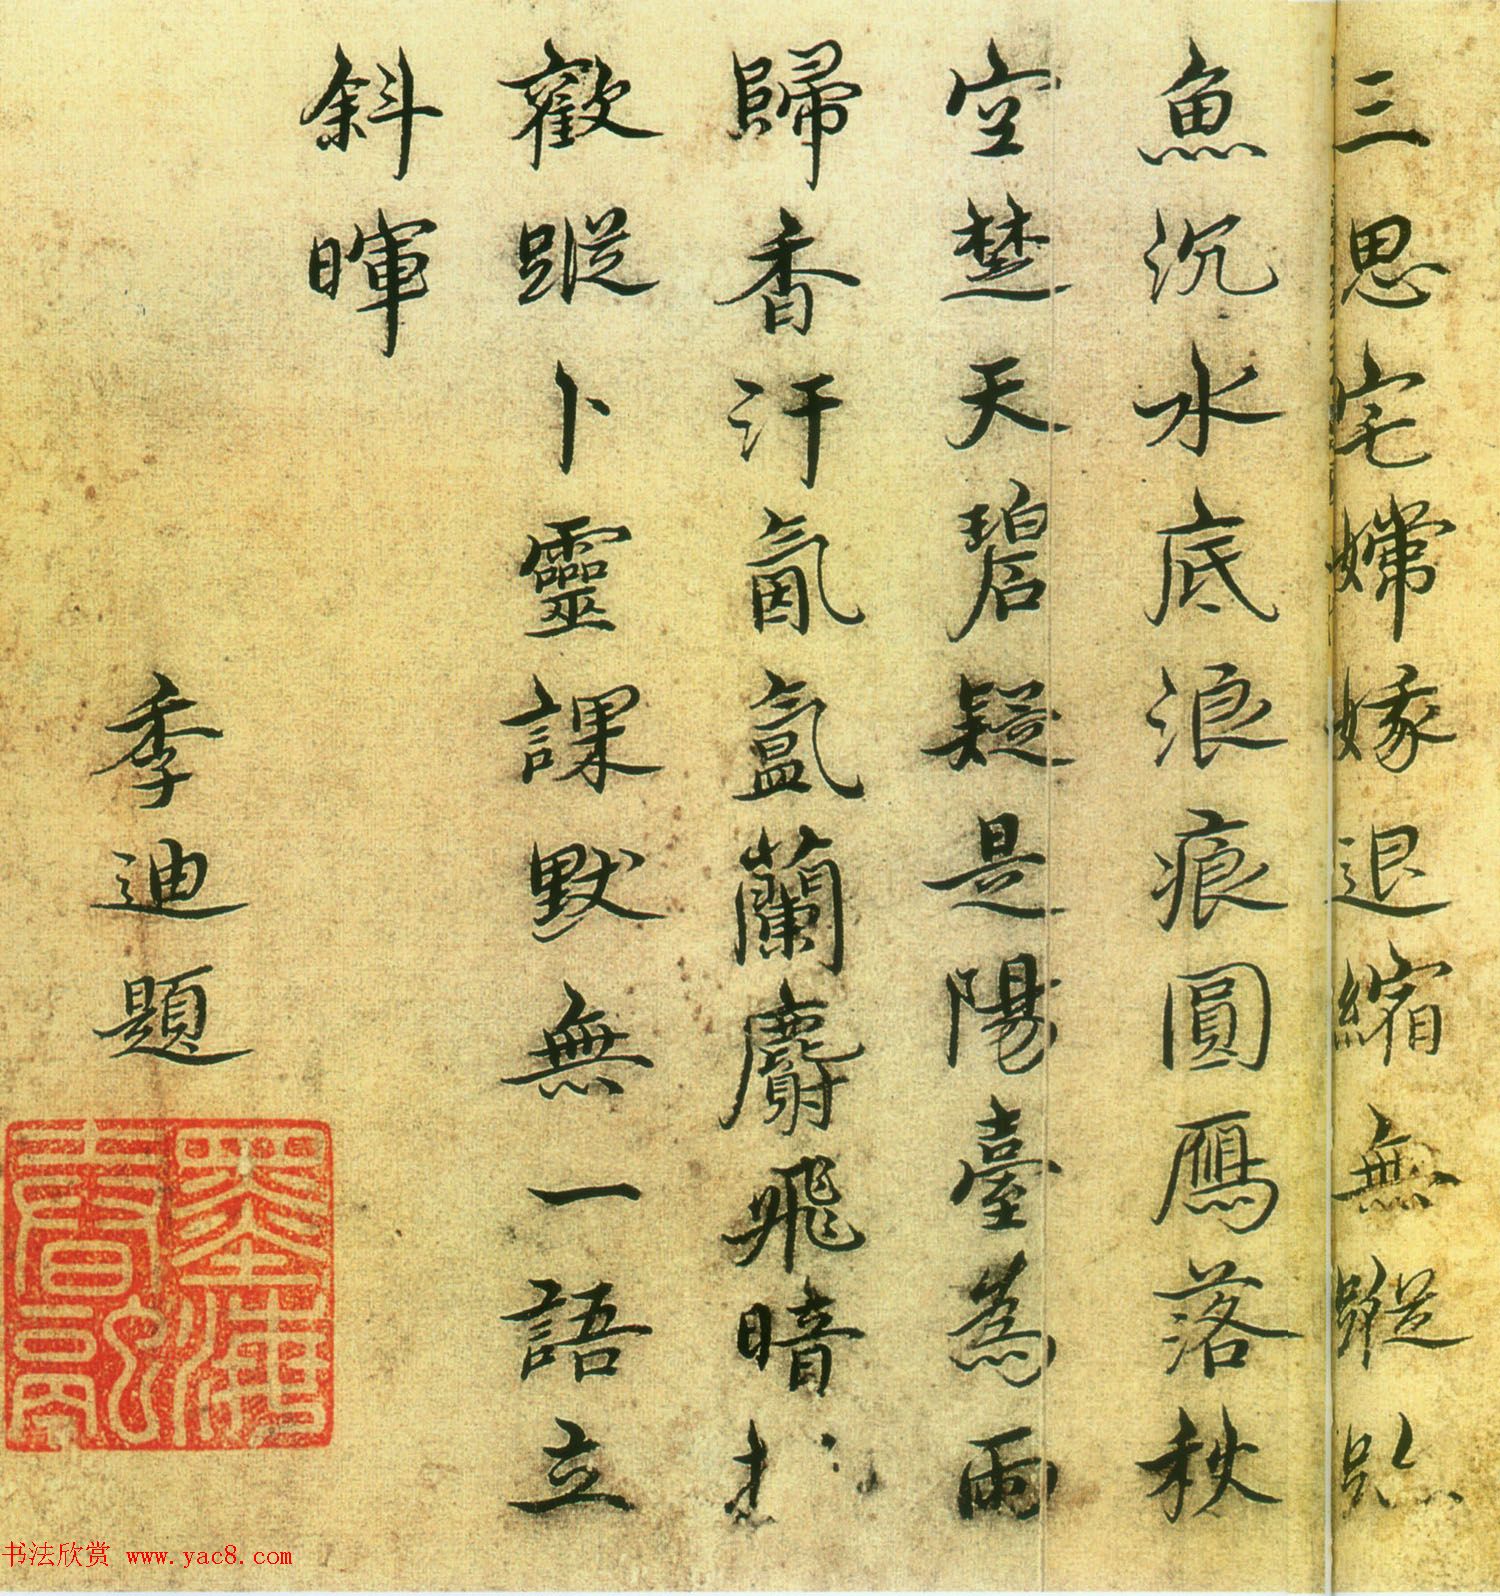 三思宅嫦娥退縮無蹤跡
魚沉水底浪痕圓鴈落秋
空楚天碧疑是陽臺為雨
歸香汗氤氳蘭麝飛暗
歡蹤卜靈課默無一語立
斜暉
季迪題
书法欣赏 www.yac8.com